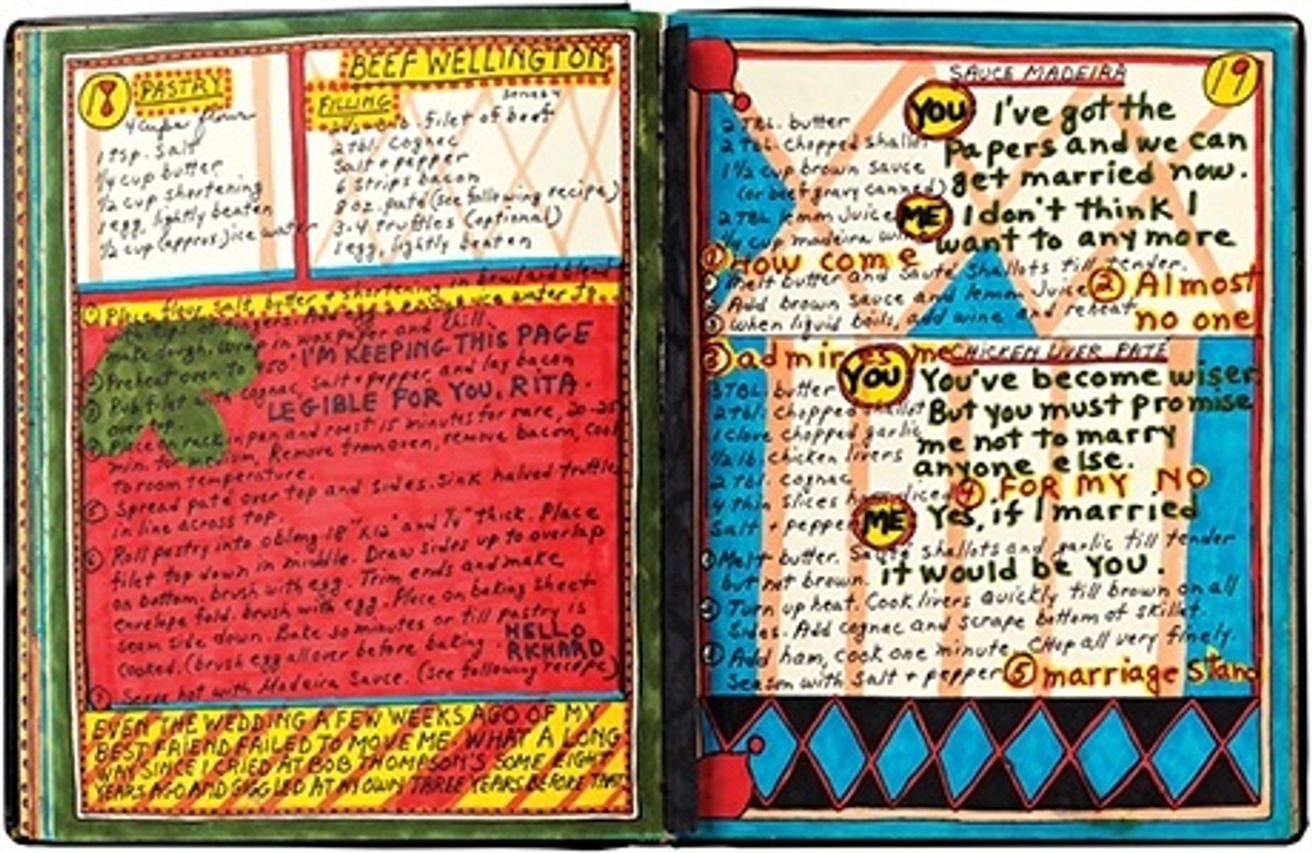 18
PASTRY
4 cups flour
1 tsp. salt
1/4 cup butter
1/2 cup shortening
1 egg, lightly beaten
1/2 cup (approx.) ice water
BEEF WELLINGTON
serves 4
FILLING
lb. filet of beef
2 tbl. cognac
Salt + pepper
6 strips bacon
8 oz. paté (see following recipe)
3-4 truffles (optional)
1 egg, lightly beaten
① Place flour, salt, butter + shortening in bowl and blend
with tips of fingers. Add egg ice water to
make dough. Wrap in wax paper and chill.
I'M KEEPING THIS PAGE
② Preheat oven to 450°
③ Rub filet with cognac, salt + pepper, and lay bacon
over top.
LEGIBLE FOR YOU, RITA.
Place on rack in pan and roast 15 minutes for rare, 20-25
min. for medium. Remove from oven, remove bacon, cool
to room temperature.
⑤ Spread paté over top and sides. Sink halved truffles
in line across top.
⑥ Roll pastry into oblong 18" x 12" and 1/4" thick. Place
filet top down in middle. Draw sides up to overlap
on bottom. brush with egg. Trim ends and make
envelope fold. brush with egg. Place on baking sheet
seam side down. Bake 30 minutes or till pastry is
cooked. (brush egg all over before baking
HELLO
RICHARD
⑦ Serve hot with Madeira Sauce. (See following recipe)
EVEN THE WEDDING A FEW WEEKS AGO OF MY
BEST FRIEND FAILED TO MOVE ME. WHAT A LONG
WAY SINCE I CRIED AT BOB THOMPSON'S SOME EIGHT
YEARS AGO AND GIGGLED AT MY OWN THREE YEARS BEFORE THAT
19
SAUCE MADEIRA
2 TBL. butter
2 TBL. chopped shallots
1 1/2 cup brown sauce
(or beef gravy canned)
2 TBL lemon juice
1/4 cup madeira wine
YOU I've got the
Papers and we can
get married now.
ME I don't think I
want to any more
① How come
① Melt butter and sauté shallots till tender.
② Add brown sauce and lemon juice
③ When liquid boils, add wine and reheat
② Almost
no one
③ admires me
CHICKEN LIVER PATÉ
3 TBL butter
2 tbl. chopped shallot
1 clove chopped garlic
1/2 lb. chicken livers
2 TBL. cognac
4 thin slices ham, diced
Salt + pepper
YOU You've become wiser
But you must promise
me not to marry
anyone else.
④ FOR MY NO
ME Yes, if I married
it would be YOU.
① Melt butter. Sauté shallots and garlic till tender
but not brown.
② Turn up heat. Cook livers quickly till brown on all
sides. Add cognac and scrape bottom of skillet.
③ Add ham, cook one minute. Chop all very finely.
Season with salt + pepper
⑤ marriage stand